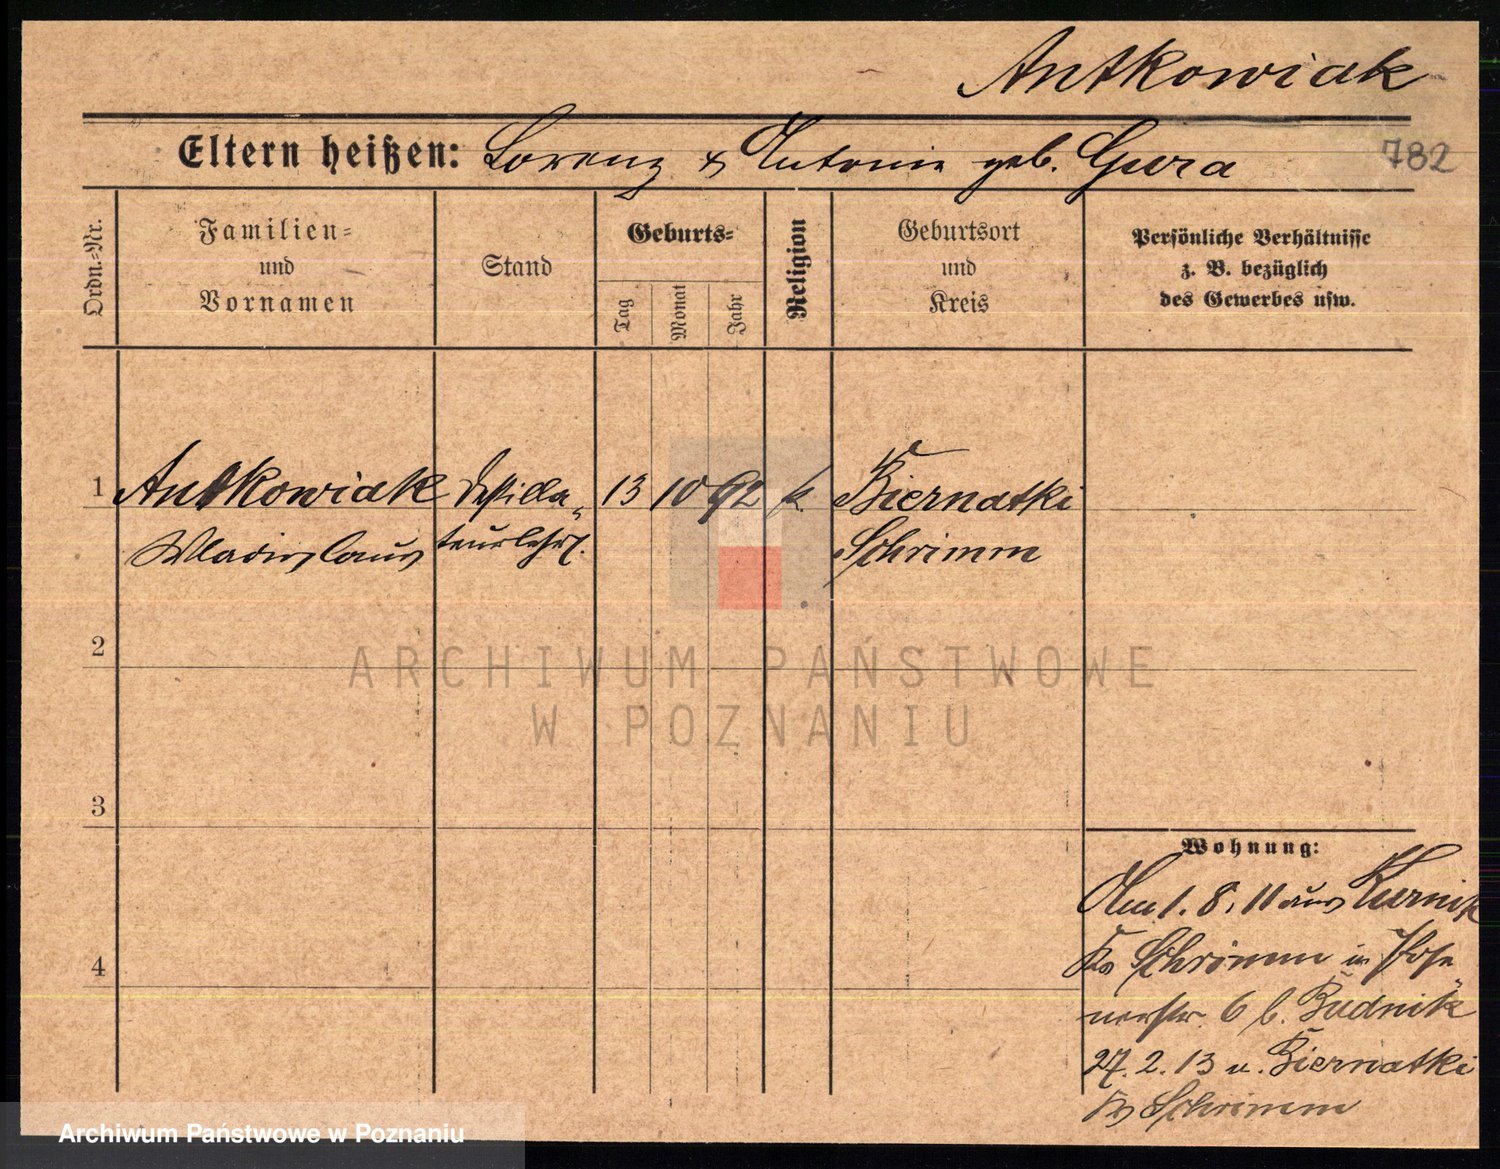 Antkowiak
Eltern heißen: Lorenz & Antonie geb. Gura
782
Ordn.-Nr.
Familien-
und
Vornamen
Stand
Geburts-
Tag
Monat
Jahr
Religion
Geburtsort
und
Kreis
Persönliche Verhältnisse
z. B. bezüglich
des Gewerbes usw.
1 Antkowiak Destilla- 13 10 92 k. Biernatki
Wladislaus teurlehrl. Schrimm
2
3
4
Wohnung:
Am 1. 8. 11 aus Kurnik
Krs Schrimm in Pose-
nerstr. 6 b. Budnik
27. 2. 13 n. Biernatki
Krs Schrimm
ARCHIWUM PAŃSTWOWE
W POZNANIU
Archiwum Państwowe w Poznaniu